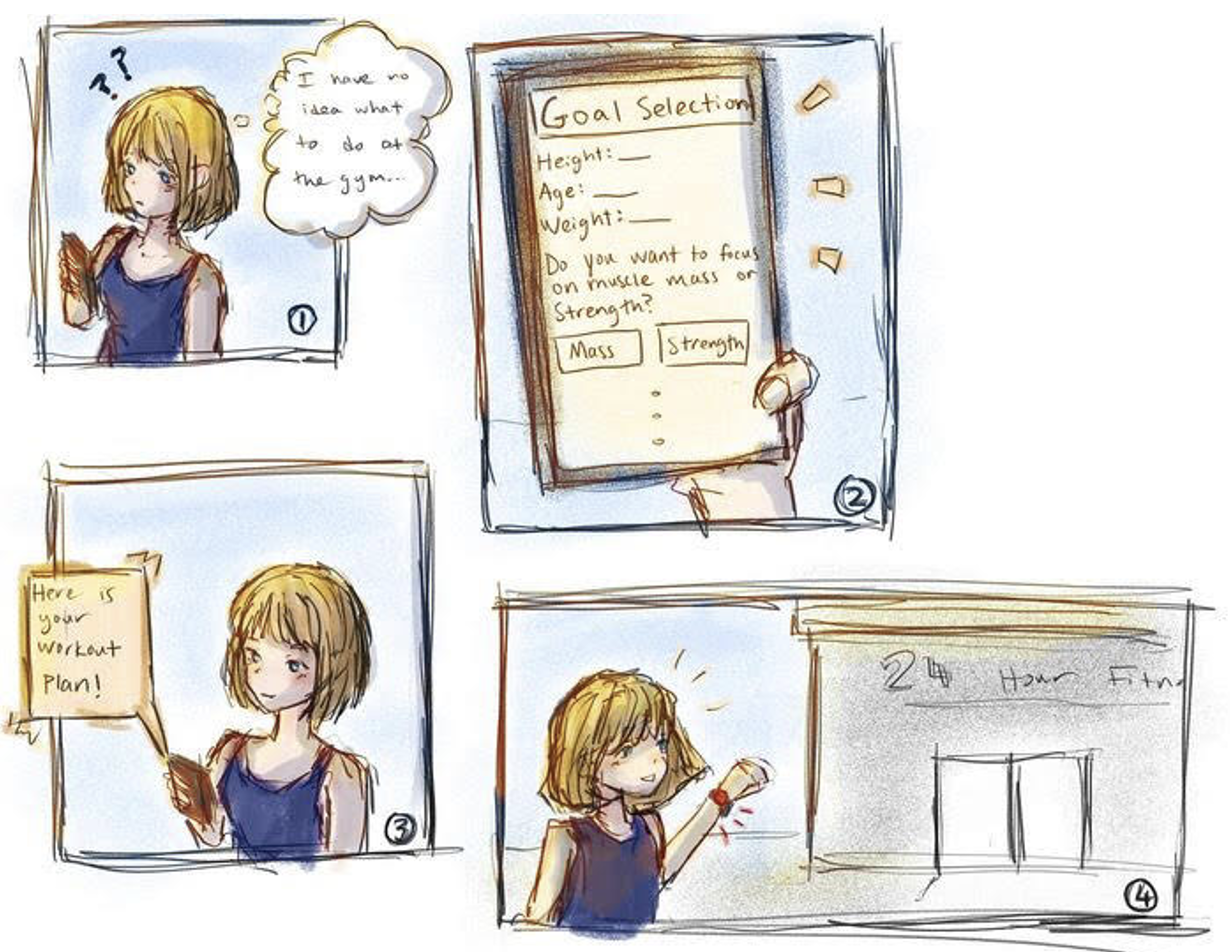 ??
I have no
idea what
to do at
the gym...
①
Goal Selection
Height: __
Age: __
Weight: __
Do you want to focus
on muscle mass or
Strength?
Mass
Strength
②
Here is
your
workout
plan!
③
24 Hour Fitn
④